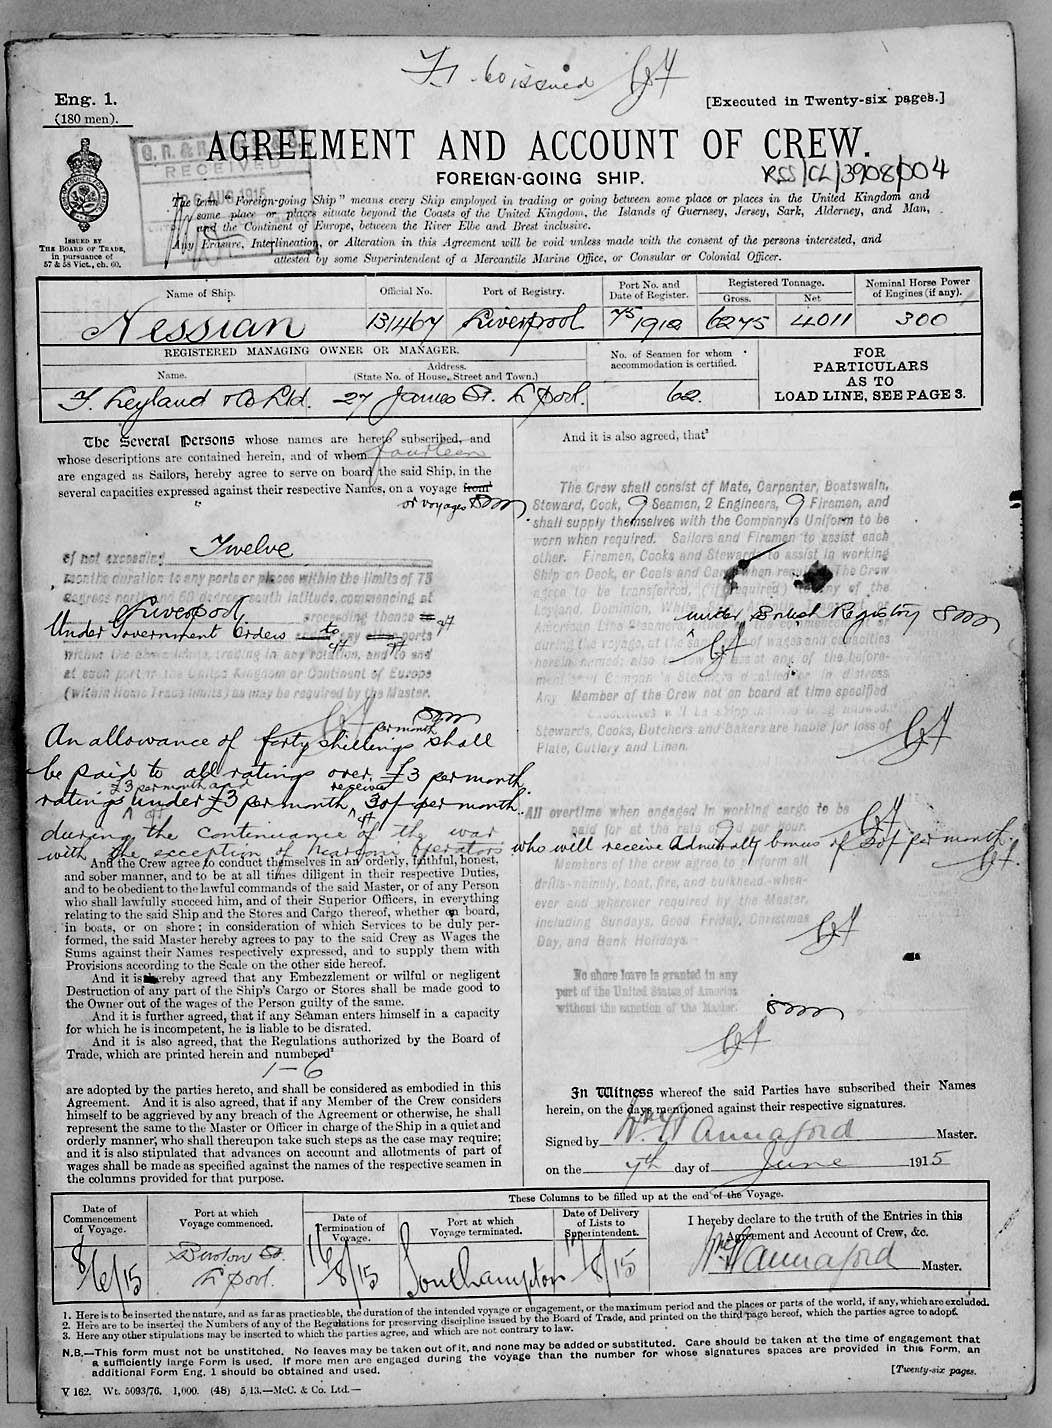 Fr 60 issued
Eng. 1.
(180 men).
[Executed in Twenty-six pages.]
RECEIVED
AUG 1915
AGREEMENT AND ACCOUNT OF CREW.
FOREIGN-GOING SHIP.
RSS/CL/3908/004
The term "Foreign-going Ship" means every Ship employed in trading or going between some place or places in the United Kingdom and
some place or places situate beyond the Coasts of the United Kingdom, the Islands of Guernsey, Jersey, Sark, Alderney, and Man,
and the Continent of Europe, between the River Elbe and Brest inclusive.
Any Erasure, Interlineation, or Alteration in this Agreement will be void unless made with the consent of the persons interested, and
attested by some Superintendent of a Mercantile Marine Office, or Consular or Colonial Officer.
ISSUED BY
THE BOARD OF TRADE,
in pursuance of
57 & 58 Vict., ch. 60.
Name of Ship.
Official No.
Port of Registry.
Port No. and
Date of Register.
Registered Tonnage.
Gross.
Net
Nominal Horse Power
of Engines (if any).
Nessian
131467
Liverpool
75/1912
6275
4011
300
REGISTERED MANAGING OWNER OR MANAGER.
Name.
Address.
(State No. of House, Street and Town.)
No. of Seamen for whom
accommodation is certified.
FOR
PARTICULARS
AS TO
LOAD LINE, SEE PAGE 3.
F. Leyland & Co Ltd.
27 James St. L'pool.
62.
The Several Persons whose names are hereto subscribed, and
whose descriptions are contained herein, and of whom fourteen
are engaged as Sailors, hereby agree to serve on board the said Ship, in the
several capacities expressed against their respective Names, on a voyage from
or voyages
of not exceeding Twelve
months duration to any ports or places within the limits of 75
degrees north and 60 degrees south latitude, commencing at
Liverpool proceeding thence
Under Government Orders to any ports
within the above limits, trading in any rotation, and to end
at such port in the United Kingdom or Continent of Europe
(within Home Trade limits) as may be required by the Master.
per month
An allowance of forty shillings shall
be paid to all ratings over £3 per month
£3 per month and receive
ratings under £3 per month, 30/- per month.
during the continuance of the war
with the exception of Marconi operators who will receive Admiralty bonus of 30/- per month.
And the Crew agree to conduct themselves in an orderly, faithful, honest,
and sober manner, and to be at all times diligent in their respective Duties,
and to be obedient to the lawful commands of the said Master, or of any Person
who shall lawfully succeed him, and of their Superior Officers, in everything
relating to the said Ship and the Stores and Cargo thereof, whether on board,
in boats, or on shore; in consideration of which Services to be duly per-
formed, the said Master hereby agrees to pay to the said Crew as Wages the
Sums against their Names respectively expressed, and to supply them with
Provisions according to the Scale on the other side hereof.
And it is hereby agreed that any Embezzlement or wilful or negligent
Destruction of any part of the Ship's Cargo or Stores shall be made good to
the Owner out of the wages of the Person guilty of the same.
And it is further agreed, that if any Seaman enters himself in a capacity
for which he is incompetent, he is liable to be disrated.
And it is also agreed, that the Regulations authorized by the Board of
Trade, which are printed herein and numbered²
1-6
are adopted by the parties hereto, and shall be considered as embodied in this
Agreement. And it is also agreed, that if any Member of the Crew considers
himself to be aggrieved by any breach of the Agreement or otherwise, he shall
represent the same to the Master or Officer in charge of the Ship in a quiet and
orderly manner, who shall thereupon take such steps as the case may require;
and it is also stipulated that advances on account and allotments of part of
wages shall be made as specified against the names of the respective seamen in
the columns provided for that purpose.
And it is also agreed, that³
The Crew shall consist of Mate, Carpenter, Boatswain,
Steward, Cook, 9 Seamen, 2 Engineers, 9 Firemen, and
shall supply themselves with the Company's Uniform to be
worn when required. Sailors and Firemen to assist each
other. Firemen, Cooks and Stewards to assist in working
Ship on Deck, or Coals and Cargo when required. The Crew
agree to be transferred, (if required) to any of the
Leyland, Dominion, White Star
under British Registry
American Line Steamers
during the voyage, at the same rate of wages and capacities
herein named; also to assist any of the before-
mentioned Company's Steamers disabled or in distress
Any Member of the Crew not on board at time specified
Stewards, Cooks, Butchers and Bakers are liable for loss of
Plate, Cutlery and Linen.
All overtime when engaged in working cargo to be
paid for at the rate of 9d per hour.
Members of the crew agree to perform all
drills—namely, boat, fire, and bulkhead—when-
ever and wherever required by the Master,
including Sundays, Good Friday, Christmas
Day, and Bank Holidays.
No shore leave is granted in any
part of the United States of America
without the sanction of the Master.
In Witness whereof the said Parties have subscribed their Names
herein, on the days mentioned against their respective signatures.
Signed by Hannaford Master.
on the 7th day of June 1915
These Columns to be filled up at the end of the Voyage.
Date of
Commencement
of Voyage.
Port at which
Voyage commenced.
Date of
Termination of
Voyage.
Port at which
Voyage terminated.
Date of Delivery
of Lists to
Superintendent.
I hereby declare to the truth of the Entries in this
Agreement and Account of Crew, &c.
8/6/15
L'pool.
16/8/15
Southampton
17/8/15
Hannaford Master.
1. Here is to be inserted the nature, and as far as practicable, the duration of the intended voyage or engagement, or the maximum period and the places or parts of the world, if any, which are excluded.
2. Here are to be inserted the Numbers of any of the Regulations for preserving discipline issued by the Board of Trade, and printed on the third page hereof, which the parties agree to adopt.
3. Here any other stipulations may be inserted to which the parties agree, and which are not contrary to law.
N.B.—This form must not be unstitched. No leaves may be taken out of it, and none may be added or substituted. Care should be taken at the time of engagement that
a sufficiently large Form is used. If more men are engaged during the voyage than the number for whose signatures spaces are provided in this Form, an
additional Form Eng. 1 should be obtained and used.
[Twenty-six pages.
V 162. Wt. 5093/76. 1,000. (48) 5/13.—McC. & Co. Ltd.—